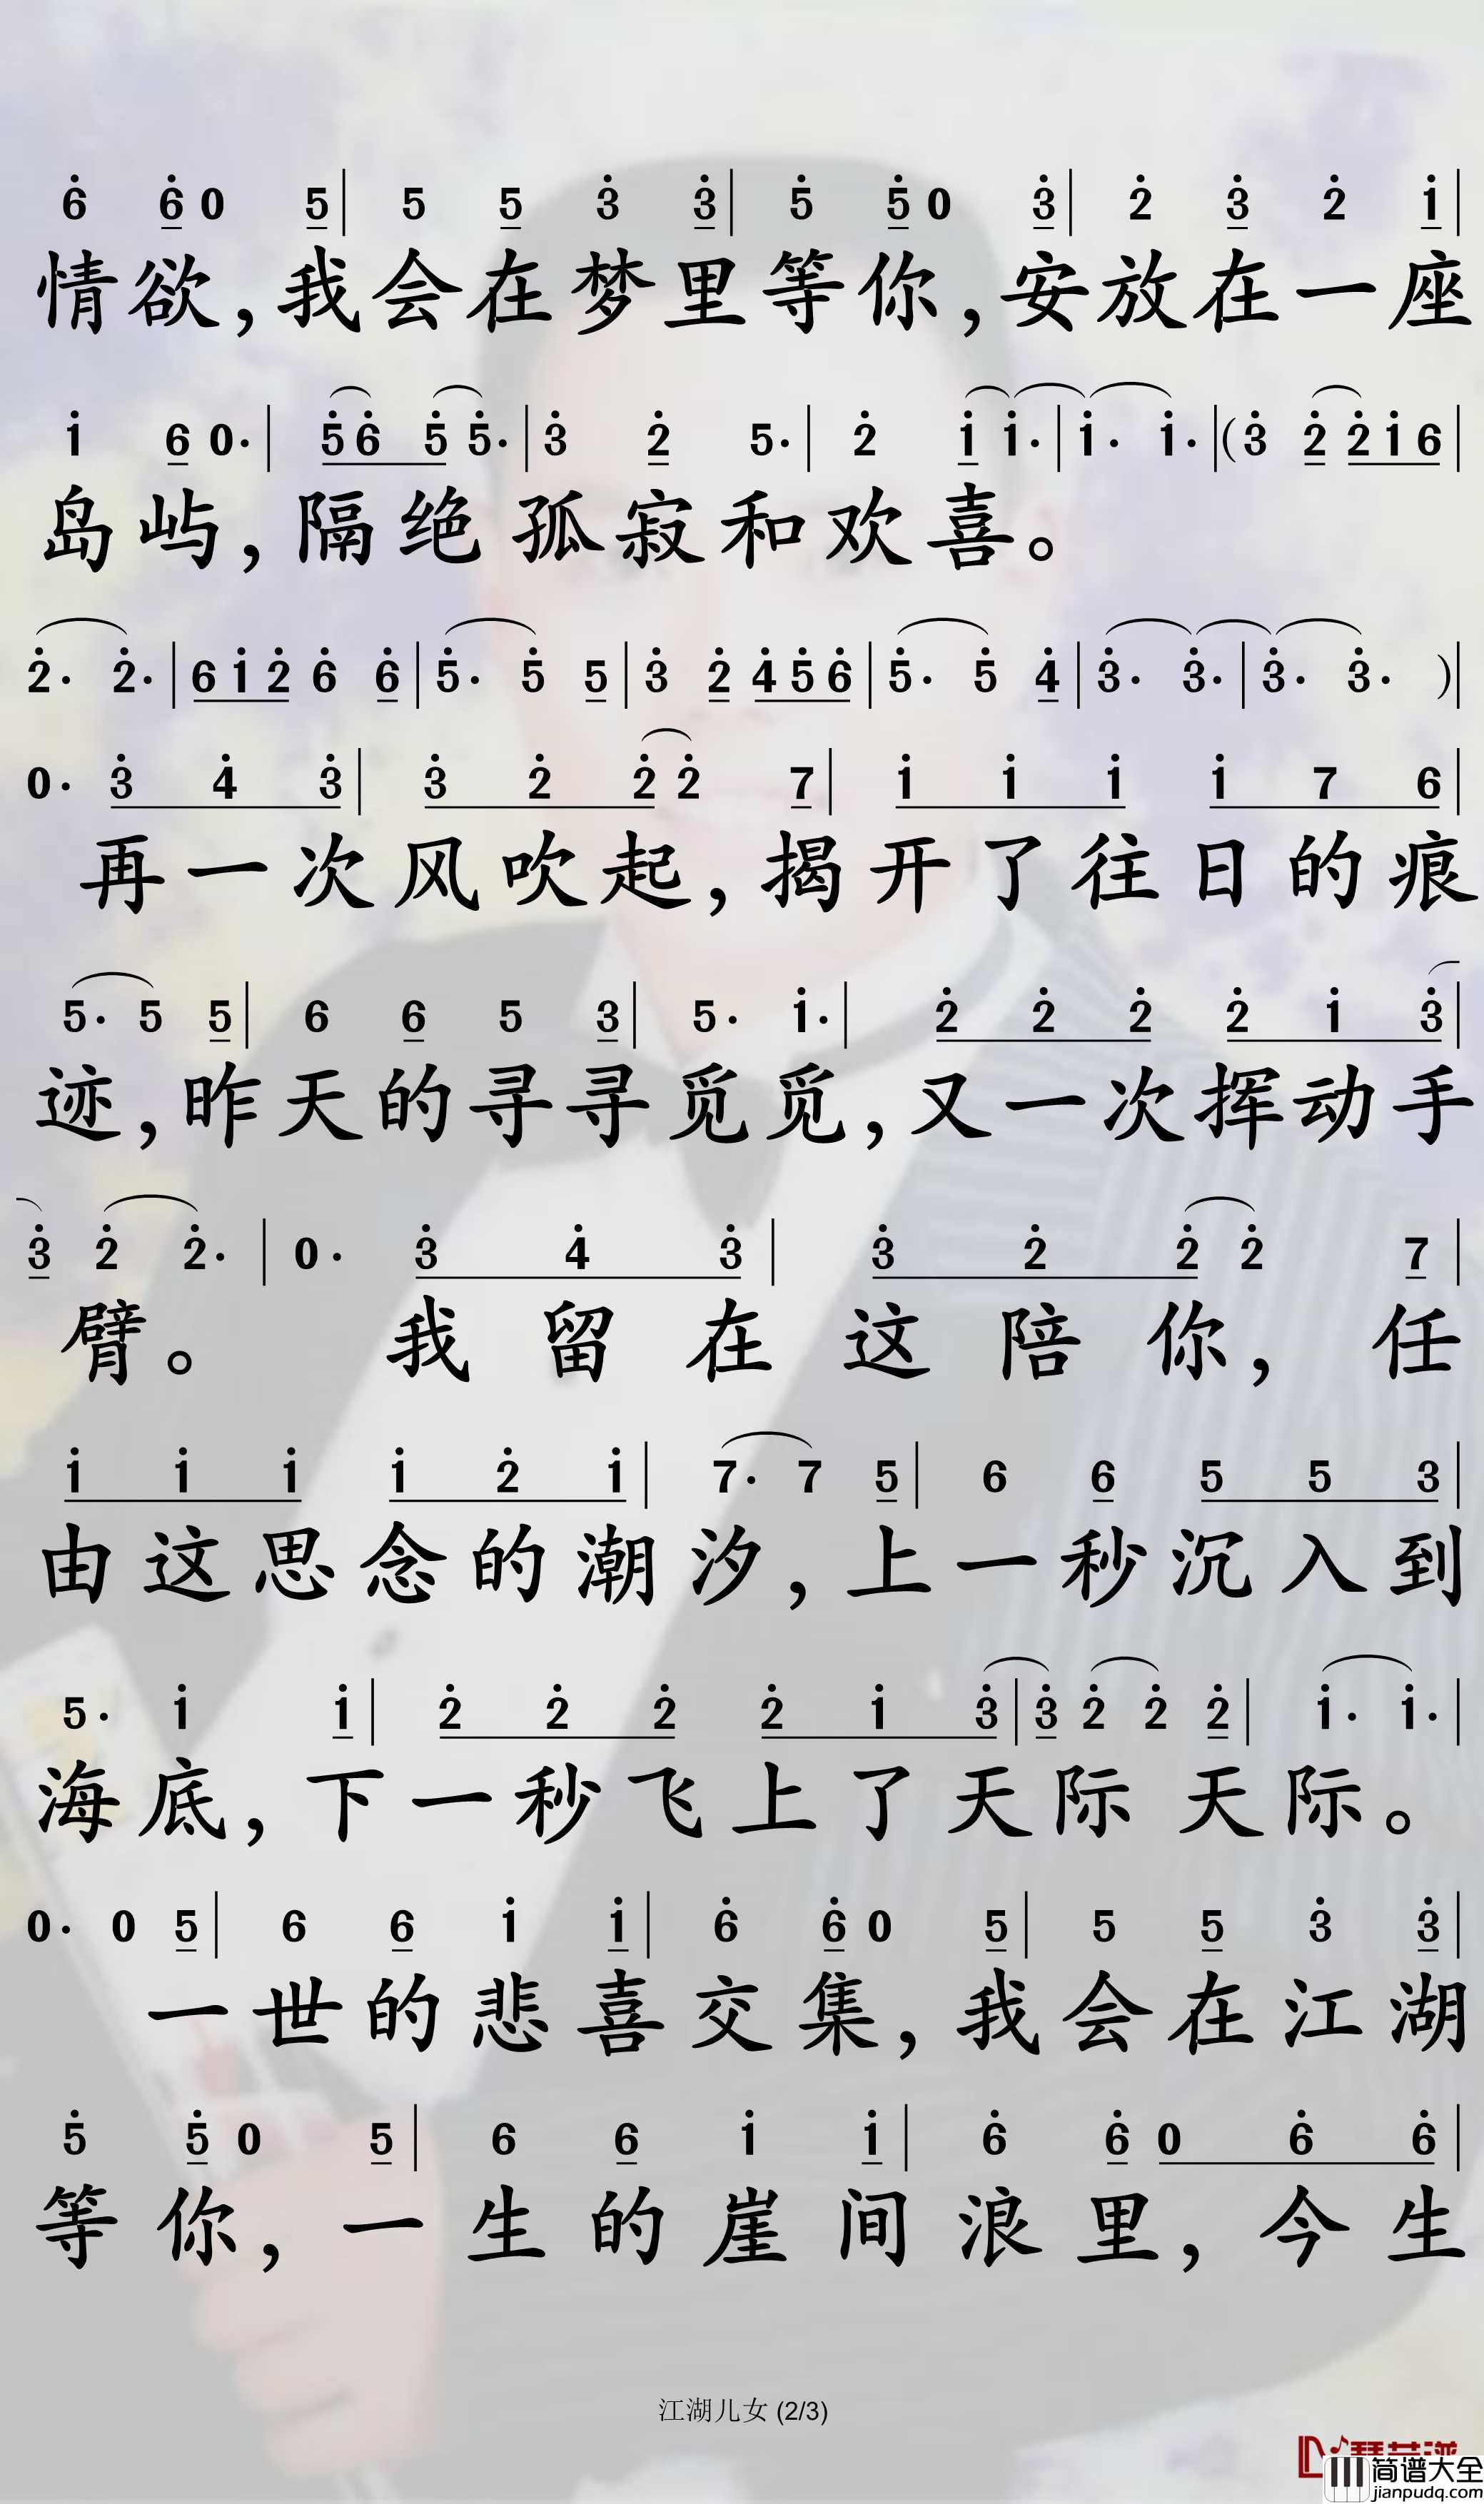 6̇ 6̇ 0 5 | 5 5 3̇ 3̇ | 5̇ 5̇ 0 3̇ | 2̇ 3̇ 2̇ 1̇ |
情欲,我会在梦里等你,安放在一座
1̇ 6 0· | 5̇ 6̇ 5̇ 5̇· | 3̇ 2̇ 5· | 2̇ 1̇ 1̇· | 1̇· 1̇· | (3̇ 2̇ 2̇ 1̇ 6 |
岛屿,隔绝孤寂和欢喜。
2̇· 2̇· | 6 1̇ 2̇ 6̇ 6̇ | 5̇· 5̇ 5 | 3̇ 2̇ 4̇ 5̇ 6̇ | 5̇· 5̇ 4̇ | 3̇· 3̇· | 3̇· 3̇· ) |
0· 3̇ 4̇ 3̇ | 3̇ 2̇ 2̇ 2̇ 7 | 1̇ 1̇ 1̇ 1̇ 7 6 |
再一次风吹起,揭开了往日的痕
5· 5 5 | 6 6 5 3 | 5· 1̇· | 2̇ 2̇ 2̇ 2̇ 1̇ 3̇ |
迹,昨天的寻寻觅觅,又一次挥动手
3̇ 2̇ 2̇· | 0· 3̇ 4̇ 3̇ | 3̇ 2̇ 2̇ 2̇ 7 |
臂。我留在这陪你,任
1̇ 1̇ 1̇ 1̇ 2̇ 1̇ | 7· 7 5 | 6 6 5 5 3 |
由这思念的潮汐,上一秒沉入到
5· 1̇ 1̇ | 2̇ 2̇ 2̇ 2̇ 1̇ 3̇ | 3̇ 2̇ 2̇ 2̇ | 1̇· 1̇· |
海底,下一秒飞上了天际天际。
0· 0 5 | 6 6 1̇ 1̇ | 6̇ 6̇ 0 5 | 5 5 3̇ 3̇ |
一世的悲喜交集,我会在江湖
5̇ 5̇ 0 5 | 6 6 1̇ 1̇ | 6̇ 6̇ 0 6̇ 6̇ |
等你,一生的崖间浪里,今生
江湖儿女 (2/3)
简谱大全
jianpudq.com